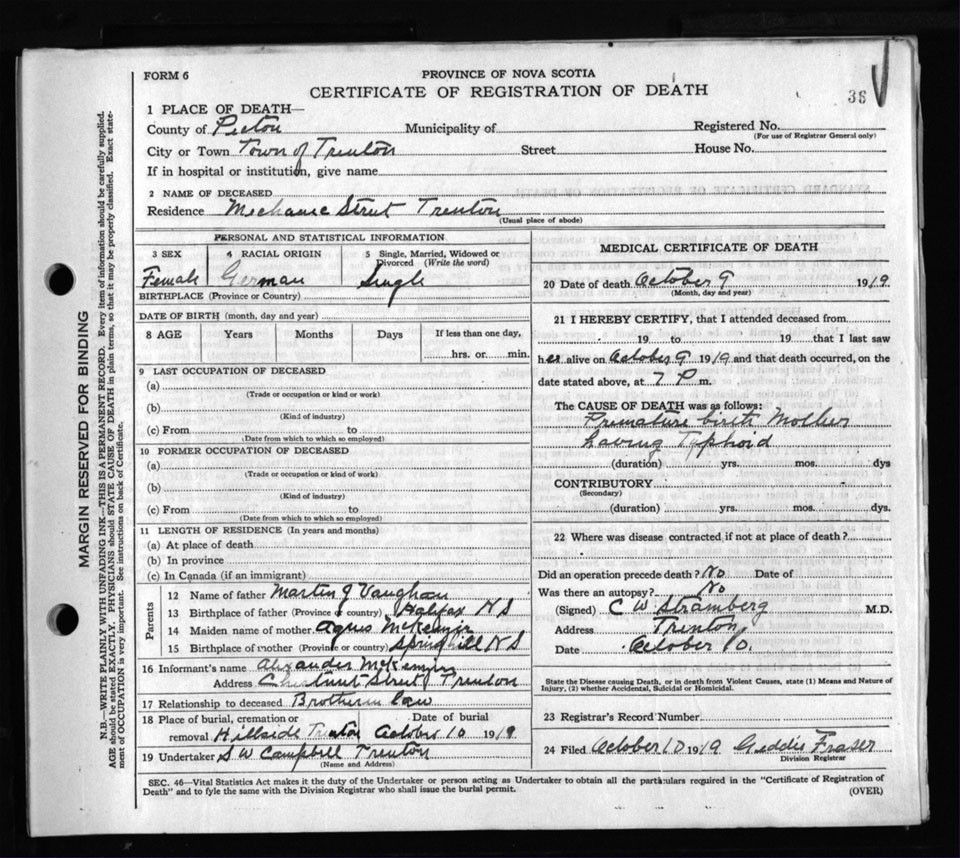 FORM 6
PROVINCE OF NOVA SCOTIA
CERTIFICATE OF REGISTRATION OF DEATH
36
1 PLACE OF DEATH—
County of Pictou Municipality of Registered No.
(For use of Registrar General only)
City or Town Town of Trenton Street House No.
If in hospital or institution, give name
2 NAME OF DECEASED
Residence Mechanic Street Trenton
(Usual place of abode)
PERSONAL AND STATISTICAL INFORMATION
3 SEX 4 RACIAL ORIGIN 5 Single, Married, Widowed or Divorced (Write the word)
Female German Single
BIRTHPLACE (Province or Country)
DATE OF BIRTH (month, day and year)
8 AGE Years Months Days If less than one day,
hrs. or min.
9 LAST OCCUPATION OF DECEASED
(a)
(Trade or occupation or kind or work)
(b)
(Kind of industry)
(c) From to
(Date from which to which so employed)
10 FORMER OCCUPATION OF DECEASED
(a)
(Trade or occupation or kind of work)
(b)
(Kind of industry)
(c) From to
(Date from which to which so employed)
11 LENGTH OF RESIDENCE (In years and months)
(a) At place of death
(b) In province
(c) In Canada (if an immigrant)
Parents
12 Name of father Martin J Vaughan
13 Birthplace of father (Province or country) Halifax N S
14 Maiden name of mother Agnes McKennie
15 Birthplace of mother (Province or country) Springhill N S
16 Informant's name Alexander McKennie
Address Chestnut Street Trenton
17 Relationship to deceased Brother in law
18 Place of burial, cremation or Date of burial
removal Hillside Trenton October 10 1919
19 Undertaker S W Campbell Trenton
(Name and Address)
MEDICAL CERTIFICATE OF DEATH
20 Date of death October 9 1919
(Month, day and year)
21 I HEREBY CERTIFY, that I attended deceased from
19 to 19 that I last saw
her alive on October 9 1919 and that death occurred, on the
date stated above, at 7 P m.
The CAUSE OF DEATH was as follows:
Premature birth Mother
having Typhoid
(duration) yrs. mos. dys
CONTRIBUTORY
(Secondary)
(duration) yrs. mos. dys.
22 Where was disease contracted, if not at place of death?
Did an operation precede death? No Date of
Was there an autopsy? No
(Signed) C W Stramberg M.D.
Address Trenton
Date October 10.
State the Disease causing Death, or in death from Violent Causes, state (1) Means and Nature of
Injury, (2) whether Accidental, Suicidal or Homicidal.
23 Registrar's Record Number
24 Filed October 10 1919 Geddie Fraser
Division Registrar
SEC. 46—Vital Statistics Act makes it the duty of the Undertaker or person acting as Undertaker to obtain all the particulars required in the "Certificate of Registration of
Death" and to fyle the same with the Division Registrar who shall issue the burial permit.
(OVER)
MARGIN RESERVED FOR BINDING
N.B.—WRITE PLAINLY WITH UNFADING INK—THIS IS A PERMANENT RECORD. Every item of information should be carefully supplied.
AGE should be stated EXACTLY. PHYSICIANS should STATE CAUSE OF DEATH in plain terms, so that it may be properly classified. Exact state-
ment of OCCUPATION is very important. See instructions on back of Certificate.